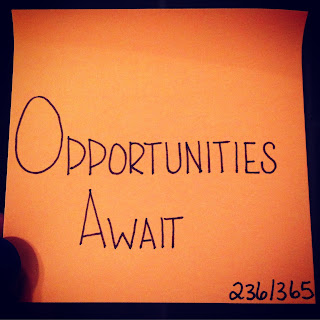 OPPORTUNITIES
AWAIT
236/365